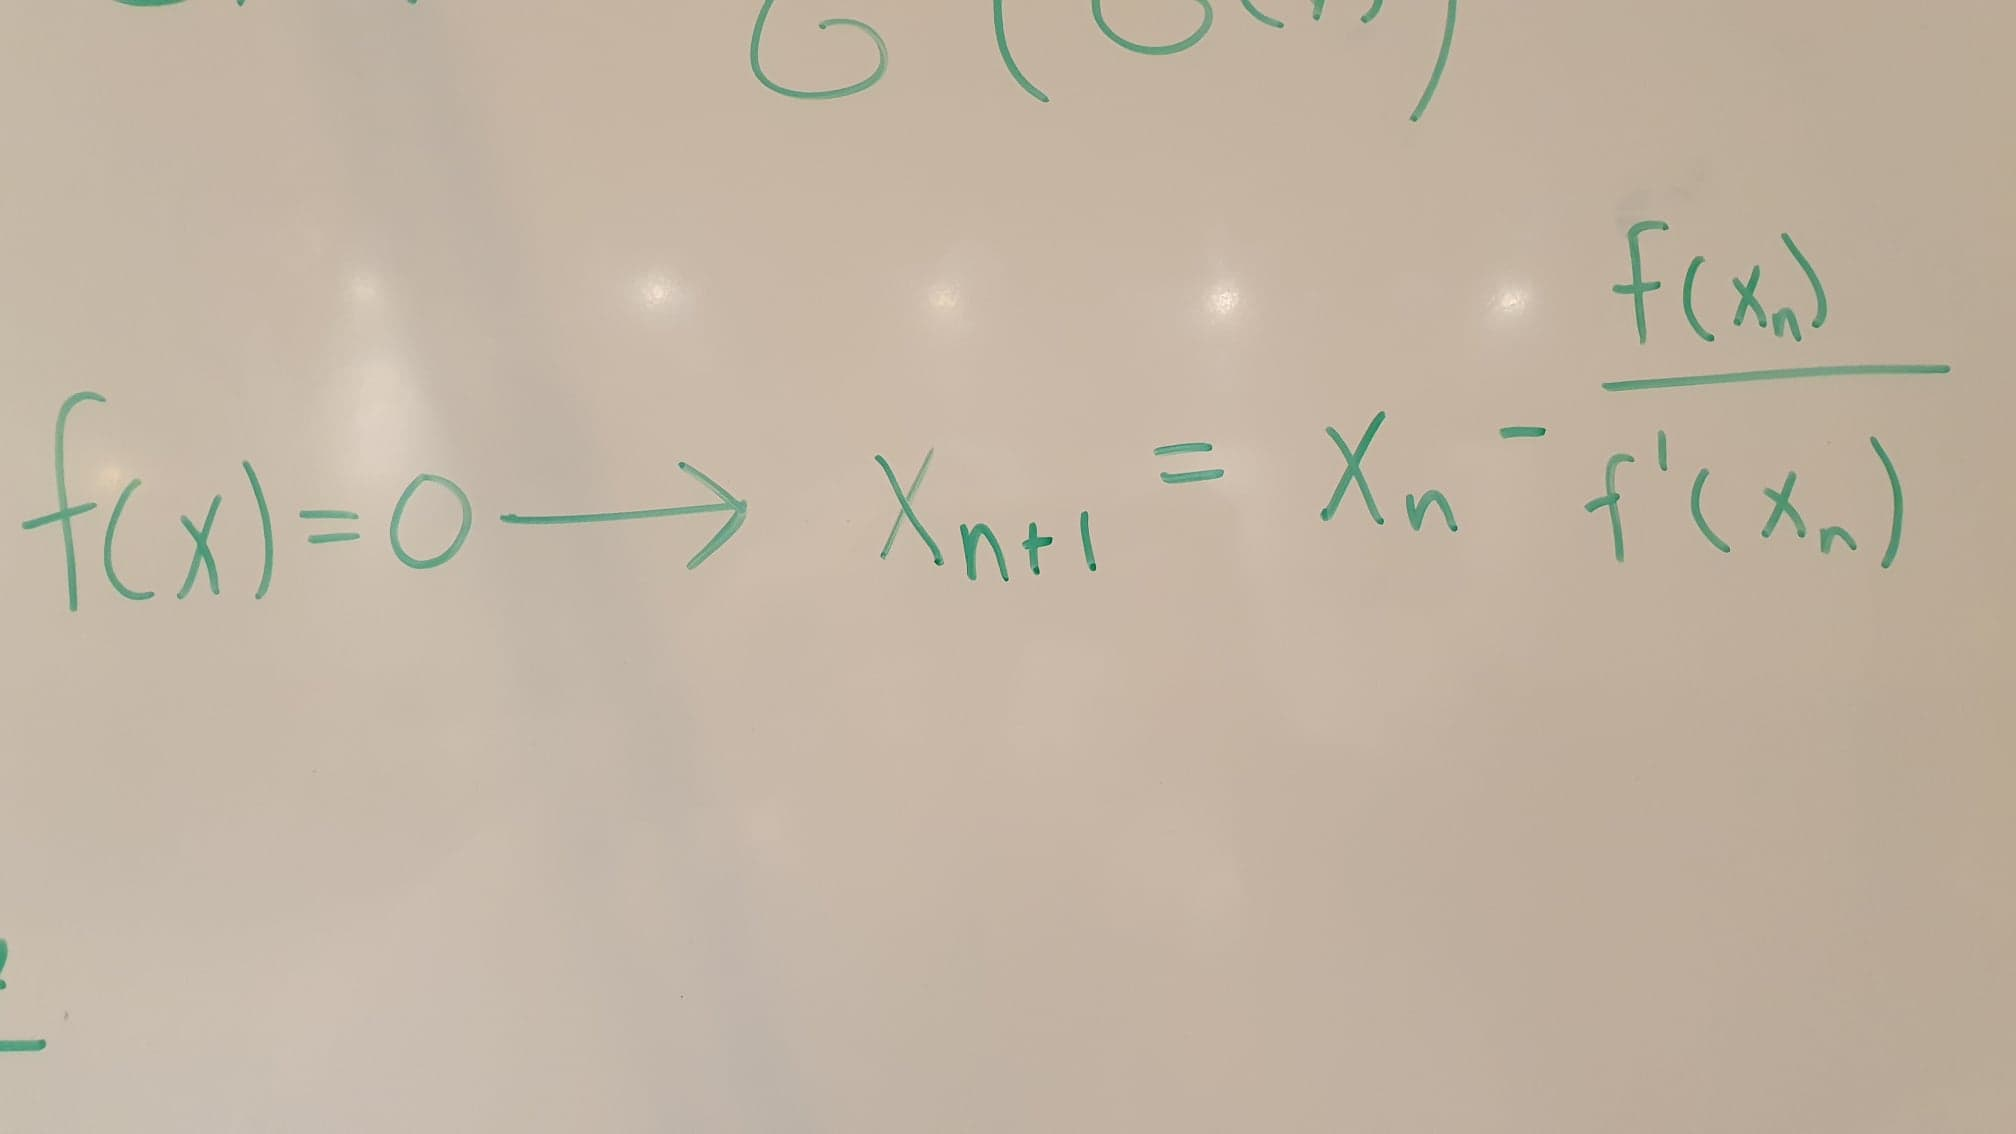 f(x)=0 → x_{n+1} = x_n - f(x_n) / f'(x_n)